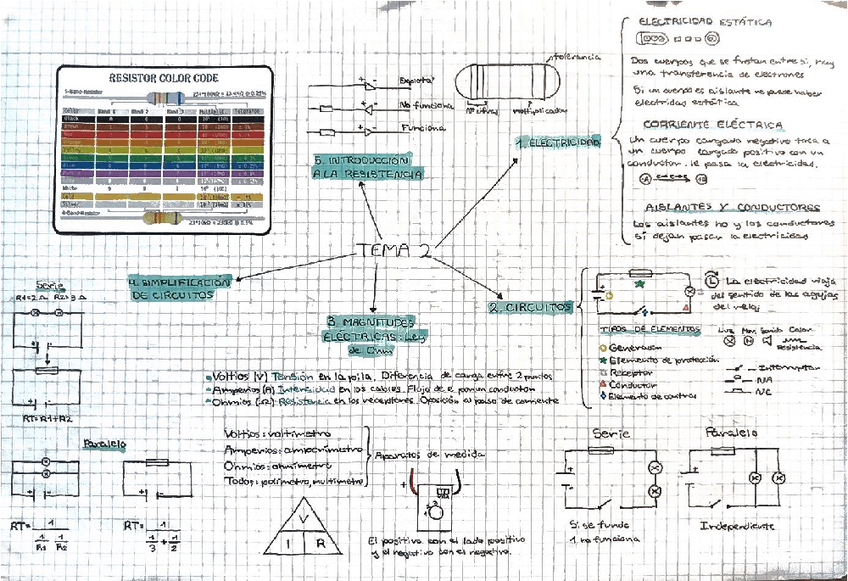 TEMA 2
1. ELECTRICIDAD
ELECTRICIDAD ESTÁTICA
Dos cuerpos que se frotan entre sí, hay
una transferencia de electrones
Si un cuerpo es aislante no puede haber
electricidad estática
CORRIENTE ELÉCTRICA
Un cuerpo cargado negativo toca a
un cuerpo cargado positivo con un
conductor, le pasa la electricidad.
AISLANTES Y CONDUCTORES
Los aislantes no y los conductores
sí dejan pasar la electricidad
2. CIRCUITOS
La electricidad viaja
del sentido de las agujas
del reloj
TIPOS DE ELEMENTOS
Generador
Elemento de protección
Receptor
Conductor
Elemento de control
Luz Mot. Sonido Calor
Resistencia
Interruptor
NA
NC
Serie
Si se funde
1 no funciona
Paralelo
Independiente
3. MAGNITUDES
ELÉCTRICAS: Ley
de Ohm
Voltios (V) Tensión en la pila. Diferencia de carga entre 2 puntos
Amperios (A) Intensidad en los cables. Flujo de e por un conductor
Ohmios (Ω) Resistencia en los receptores. Oposición al paso de corriente
Voltios: voltímetro
Amperios: amperímetro
Ohmios: ohmímetro
Todos: polímetro, multímetro
Aparatos de medida
V
I R
El positivo con el lado positivo
y el negativo con el negativo.
4. SIMPLIFICACIÓN
DE CIRCUITOS
Serie
R1=2Ω R2=3Ω
RT=R1+R2
Paralelo
RT= 1
1 1
R1 R2
RT= 1
1 + 1
3 2
5. INTRODUCCIÓN
A LA RESISTENCIA
Explota
No funciona
Funciona
tolerancia
Nº cifras
multiplicador
RESISTOR COLOR CODE
Black
Brown
Red
White
Gold